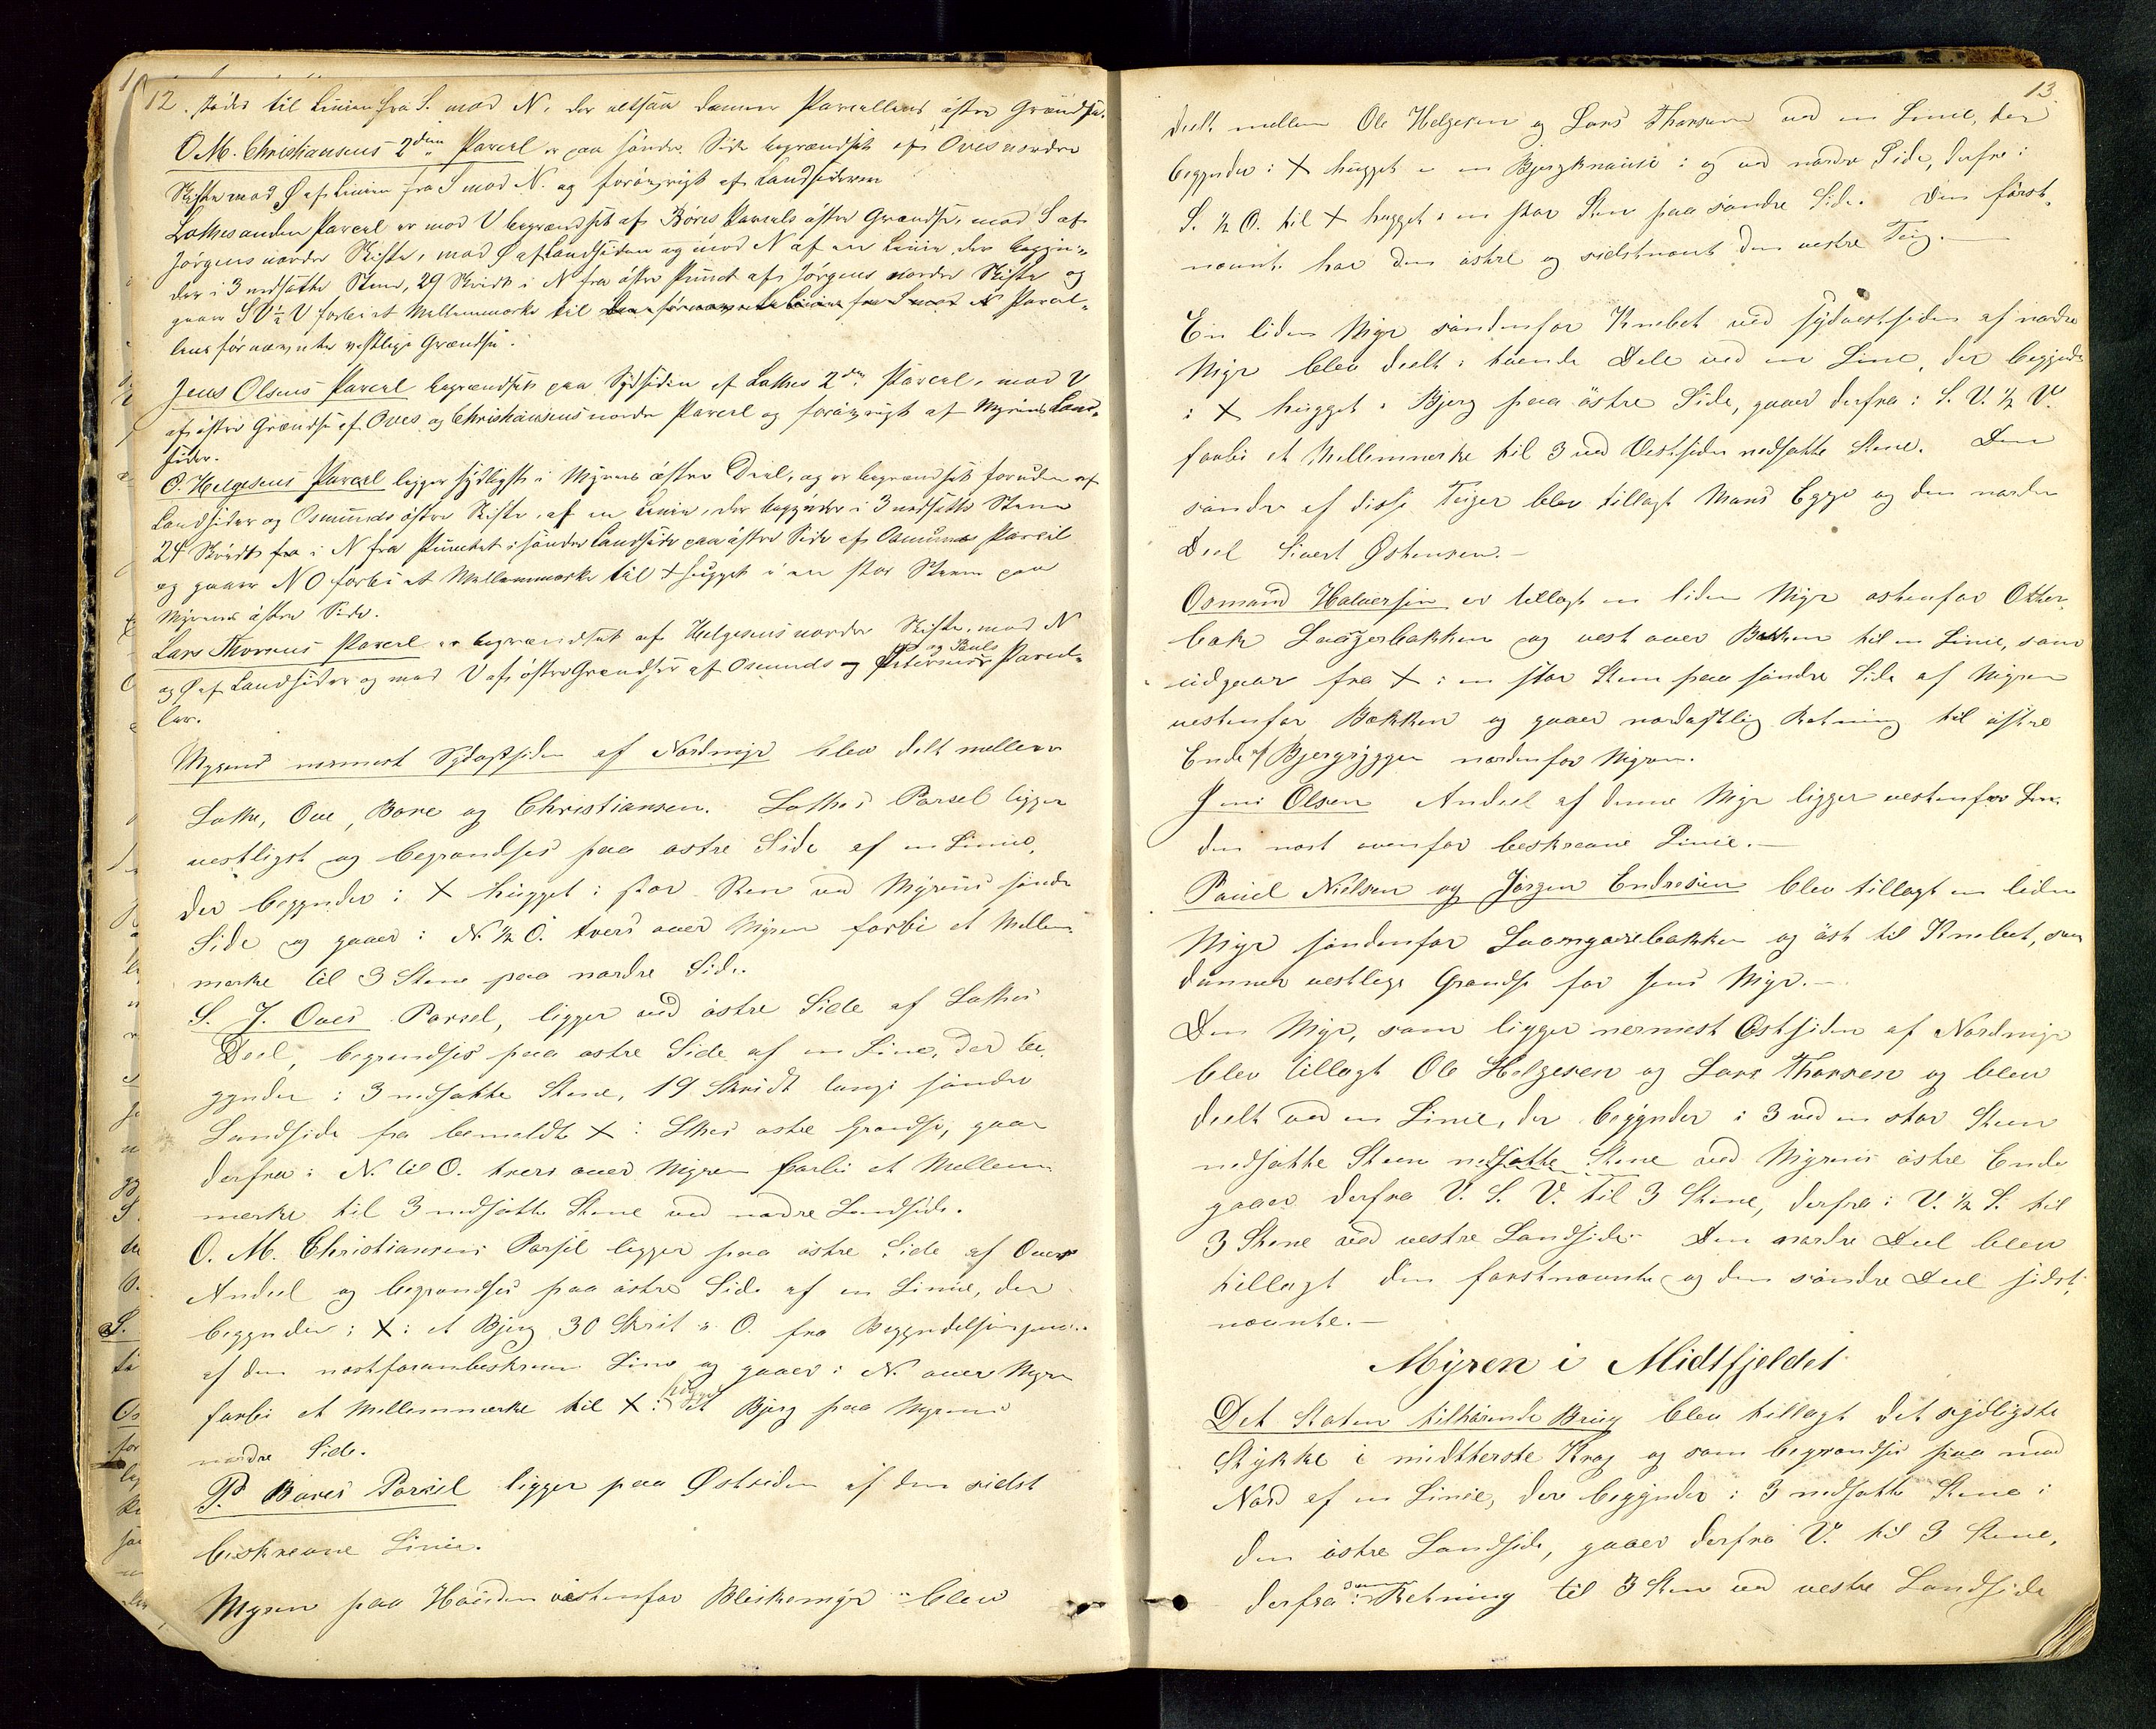 12. støder til Linien fra S. mod N. der altsaa danner Parcellens østre Grændse.
O. M. Christiansens 2den Parcel er paa søndre Side begrændset af Oves nordre
Skifte mod Ø af Linien fra S mod N. og forøvrigt af Landsiderne
Lothes anden Parcel er mod V begrændset af Böres Parcels østre Grændse, mod S af
Jörgens nordre Skifte, mod Ø af Landsiden og mod N af en Linie, der begyn-
der i 3 nedsatte Stene, 29 Skridt i N fra østre Punct af Jörgens nordre Skifte og
gaar SV ½ V forbi et Mellemmærke til den förnævnte Linie fra S mod N Parcel-
lens förnævnte vestlige Grændse.
Jens Olsens Parcel begrændses paa Sydsiden af Lothes 2den Parcel, mod V
af østre Grændse af Oves og Christiansens nordre Parcel og forøvrigt af Myrens Land-
sider.
O. Helgesens Parcel ligger sydligst i Myrens østre Deel, og er begrændset foruden af
Landsider og Osmunds østre Skifte, af en Linie, der begynder i 3 nedsatte Stene
24 Skridt fra i N fra Punctet i søndre Landside paa østre Side af Osmunds Parcel
og gaar NO forbi et Mellemmærke til + hugget i en stor Steen paa
Myrens østre Side.
Lars Thorsens Parcel er begrændset af Helgesens nordre Skifte, mod N
og Ø af Landsider og mod V af østre Grændser af Osmunds og Petersens og Pauls Parcel-
ler.
Myrens nærmest Sydostsiden af Nordmyr blev delt mellem
Lothe, Ove, Bore og Christiansen. Lothes Parsel ligger
vestligst og begrændses paa østre Side af en Linie,
der begynder i X hugget i stor Sten ved Myrens søndre
Side og gaaer i N. ½ O. tvers over Myren forbi et Mellem-
mærke til 3 Stene paa nordre Side.
S. J. Oves Parsel, ligger ved østre Side af Lothes
Deel, begrændses paa østre Side af en Line, der be-
gynder i 3 nedsatte Stene, 19 Skridt langs søndre
Landside fra bemeldte X i Lthes østre Grændse, gaar
derfra i N. til O. tvers over Myren forbi et Mellem-
mærke til 3 nedsatte Stene ved nordre Landside.
O. M. Christiansens Parsel ligger paa østre Side af Oves
Andeel og begrændses paa østre Side af en Linie, der
begynder i X i et Bjerg 30 Skrit i O. fra Begyndelsespun..
af den næstforanbeskrevne Linie og gaaer i N. over Myren
forbi et Mellemmærke til X hugget i et Bjerg paa Myrens
nordre Side.
P. Bores Parsel ligger paa Østsiden af den sidst
beskrevne Linie.
Myren paa Høiden vestenfor Bleikemyr blev
13
deelt mellem Ole Helgesen og Lars Thorsen ved en Linie, der
begynder i X hugget i en Bjergknause i og ved nordre Side, derfra i
S. ½ O. til X hugget i en stor Sten paa søndre Side. Den først-
nævnte har den østre og sidstnævnte den vestre Teig.
En liden Myr søndenfor Knebet ved sydvestsiden af nordre
Myr blev deelt i tvende Dele ved en Linie, der begynder
i X hugget i Bjerg paa østre Side, gaaer derfra i S. V. ½ V.
forbi et Mellemmerke til 3 ved Vestsiden nedsatte Stene. Den
søndre af disse Teiger blev tillagt Mons Egge og den nordre
Deel Sivert Østensen.
Osmund Halversen er tillagt en liden Myr østenfor Otter-
bæk Laagerbakken og vest over Bækken til en Linie, som
udgaar fra X i en stor Sten paa søndre Side af Myren
vestenfor Bækken og gaaer nordøstlig Retning til østre
Ende af Bjergryggen nordenfor Myren.
Jens Olsen Andeel af denne Myr ligger vestenfor Lin-
den næst ovenfor beskrevne Linie.
Pouel Nielsen og Jørgen Endresen blev tillagt en liden
Myr søndenfor Laangarebakken og øst til Knebet, som
danner vestlige Grændse for Jens Myr.
Den Myr, som ligger nærmest Østsiden af Nordmyr
blev tillagt Ole Helgesen og Lars Thorsen og blev
deelt ved en Linie, der begynder i 3 ved en stor Steen
nedsatte Steen nedsatte Stene ved Myrens østre Ende
gaaer derfra V. S. V. til 3 Stene, derfra i V. ½ S. til
3 Stene ved vestre Landside. Den nordre Deel blev
tillagt den førstnævnte og den søndre Deel sidst-
nævnte.
Myren i Midtfjeldet
Det Staten tilhørende Brug blev tillagt det sydligste
Stykke i midtterste Krog og som begrændses paa mod
Nord af en Linie, der begynder i 3 nedsatte Stene i
den østre Landside, gaaer derfra V. til 3 Stene,
derfra i samme Retning til 3 Sten ved vestre Landside